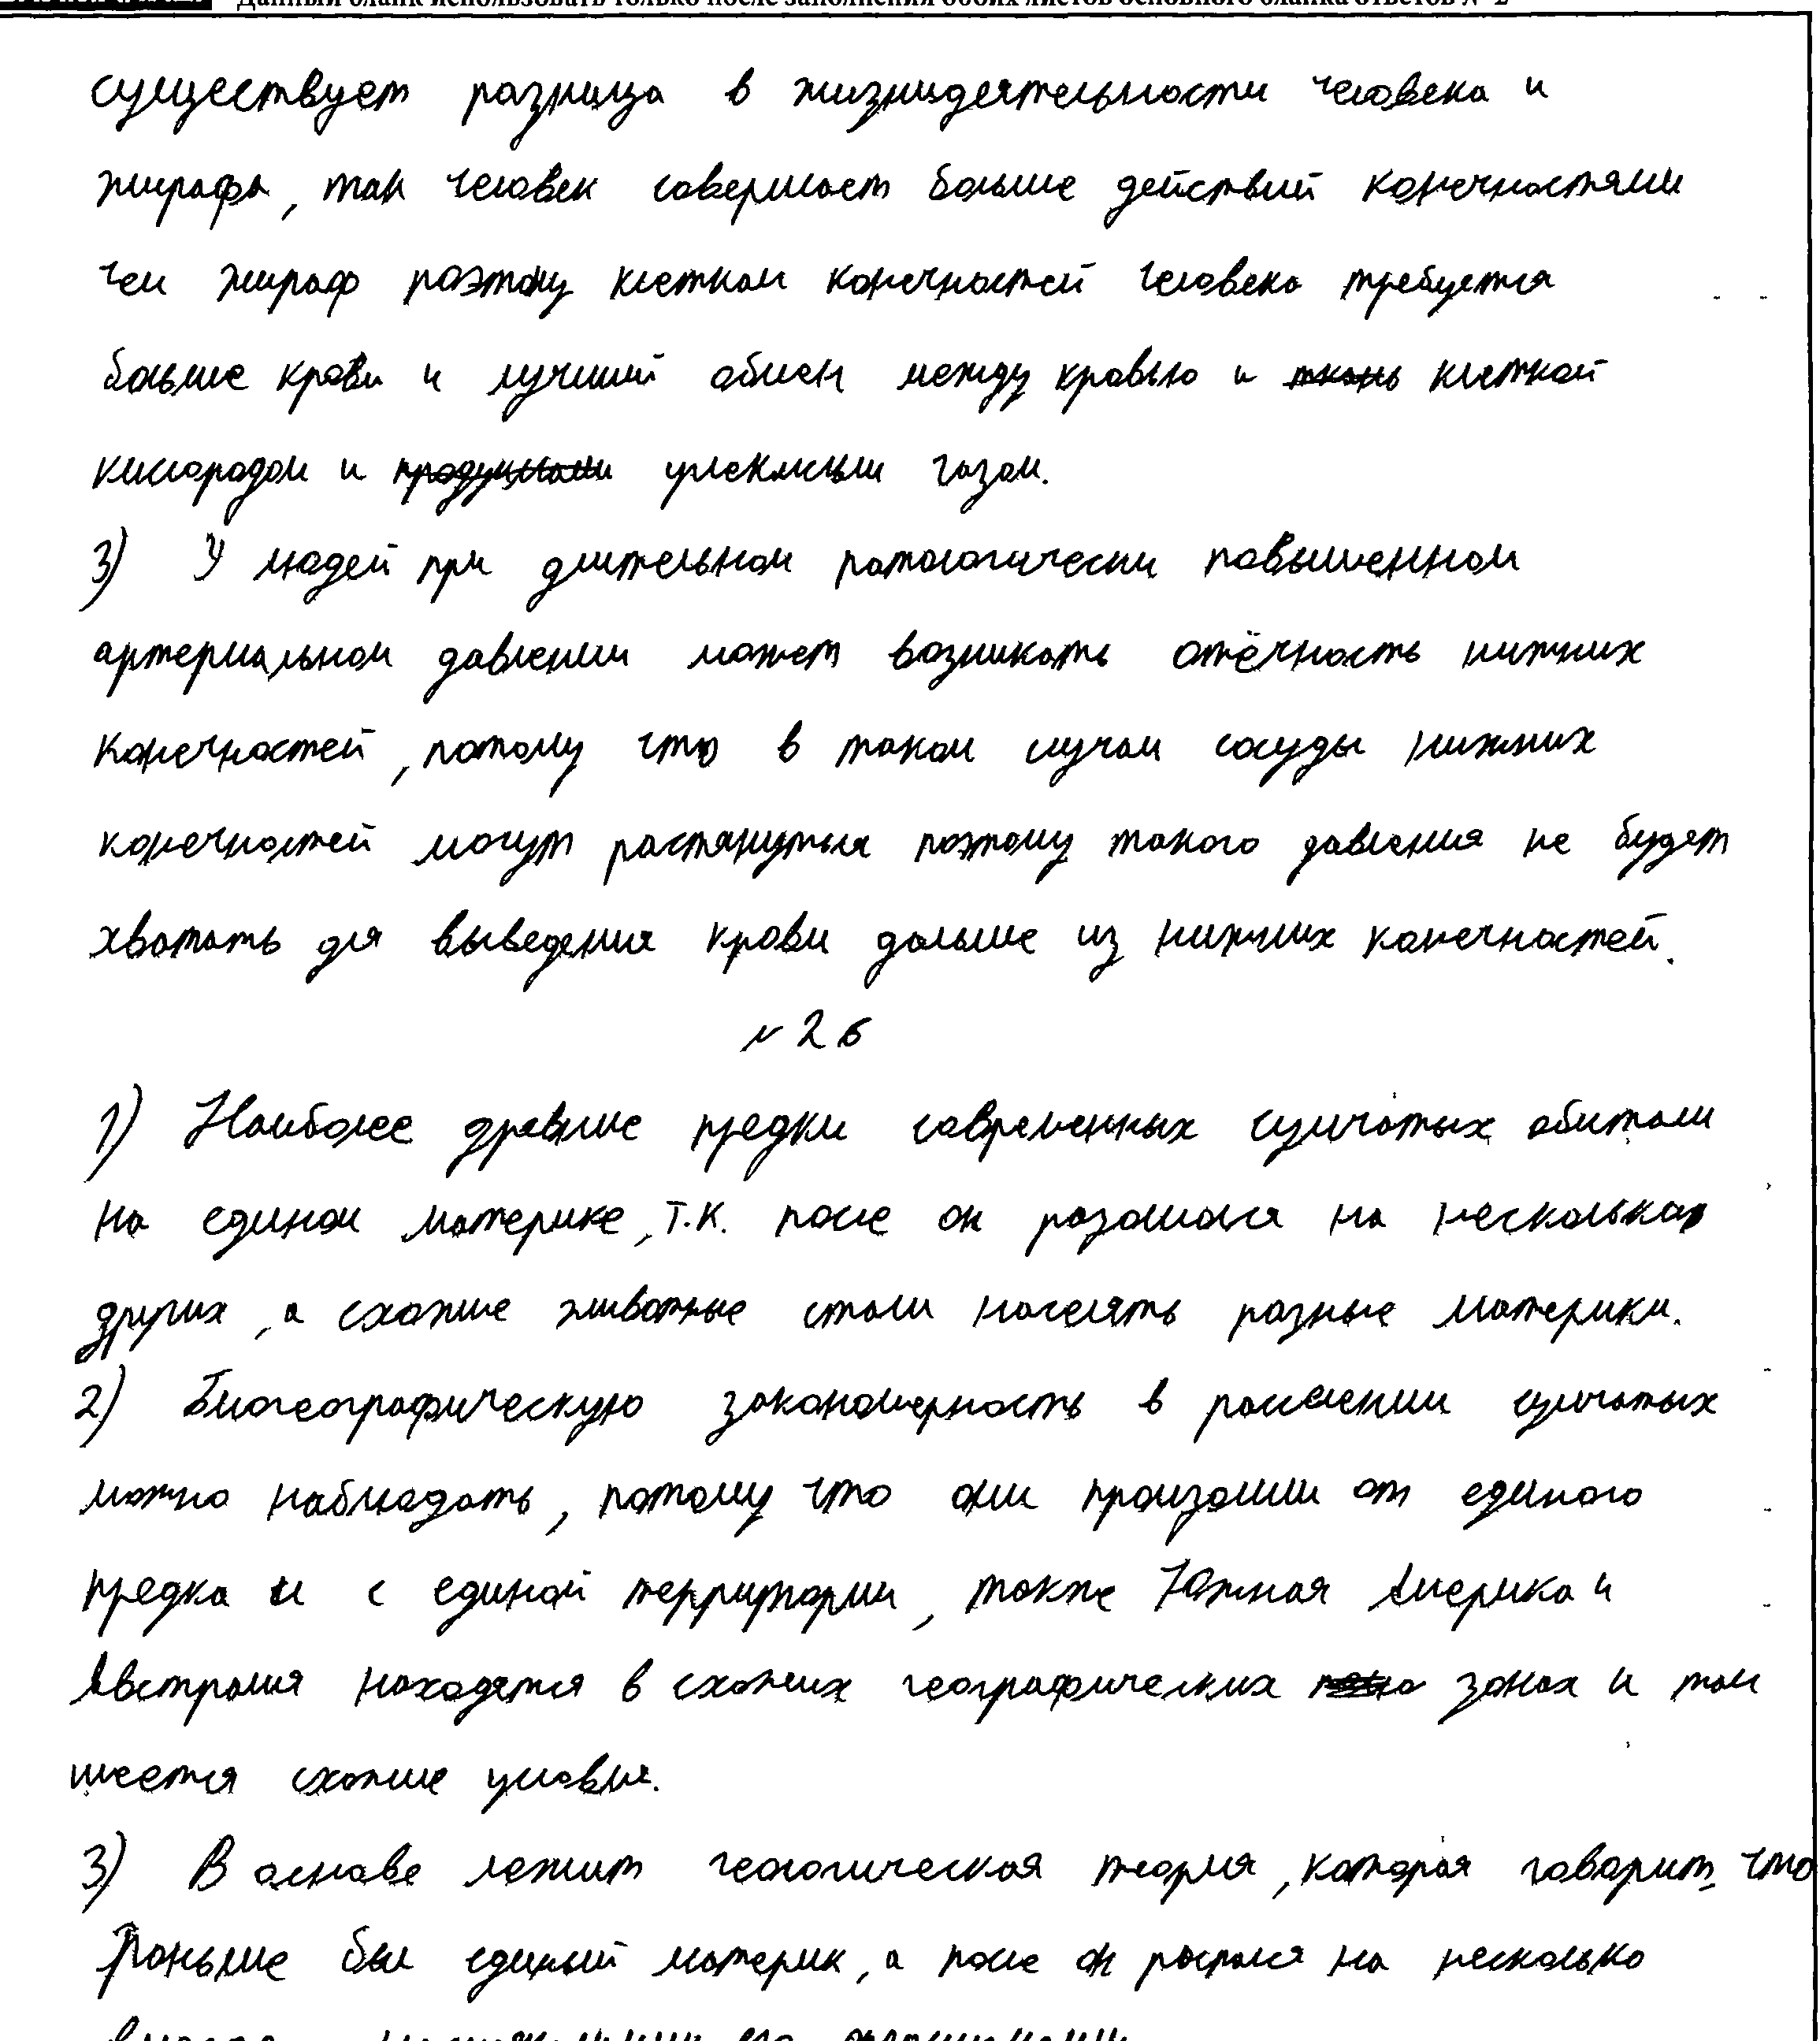 Данный бланк использовать только после заполнения обоих листов основного бланка ответов № 2
существует разница в жизнидеятельности человека и
жирафа, так человек совершает больше действий конечностями
чем жираф поэтому клеткам конечностей человека требуется
больше крови и лучший обмен между кровью и ткань клеткой
кислородом и продуктами углекислым газом.
3) У людей при длительном патологически повышенном
артериальном давлении может возникать отёчность нижних
конечностей, потому что в таком случаи сосуды нижних
конечностей могут растянутся поэтому такого давления не будет
хватать для выведения крови дальше из нижних конечностей.
№ 26
1) Наиболее древние предки современных сумчатых обитали
на едином материке, т.к. после он разошолся на несколько
других, а схожие животные стали населять разные материки.
2) Биогеографическую закономерность в расселении сумчатых
можно наблюдать, потому что они произошли от единого
предка и с единой территории, также Южная Америка и
Австралия находятся в схожих географических зонах и там
имеется схожие условия.
3) В основе лежит геологическая теория, которая говорит, что
раньше был единый материк, а после он распался на несколько